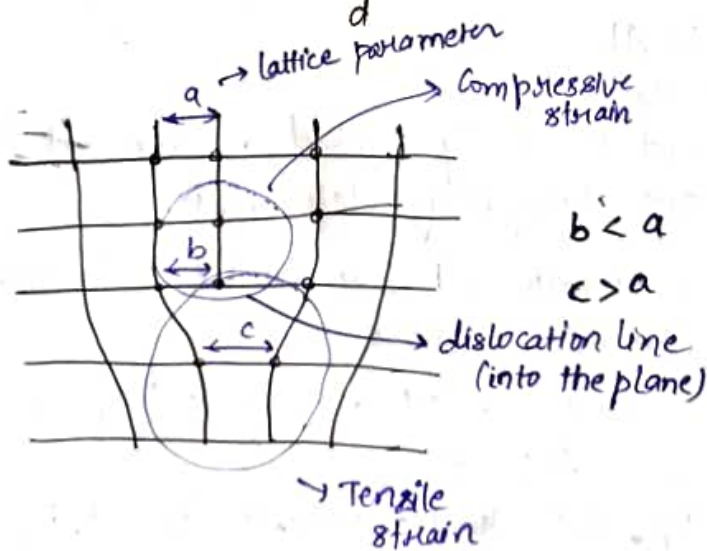 d
→ lattice parameter
a
Compressive
strain
b < a
b
c > a
c
dislocation line
(into the plane)
→ Tensile
strain